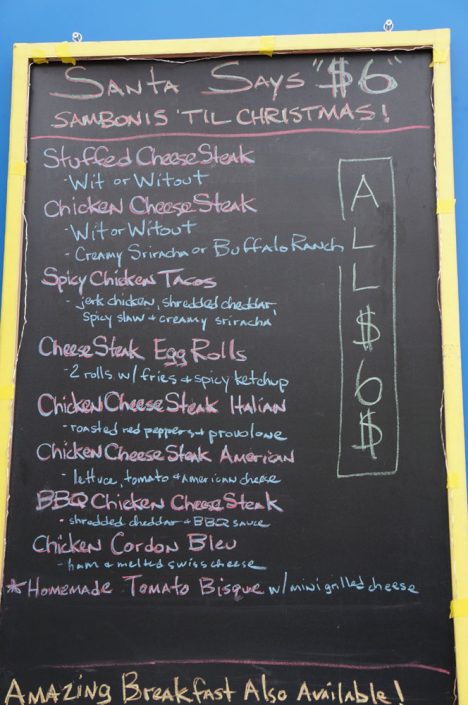 Santa Says "$6"
SAMBONIS 'TIL CHRISTMAS!
Stuffed Cheese Steak
- Wit or Witout
Chicken Cheese Steak
- Wit or Witout
- Creamy Sriracha or Buffalo Ranch
Spicy Chicken Tacos
- jerk chicken, shredded cheddar,
spicy slaw + creamy sriracha
Cheese Steak Egg Rolls
- 2 rolls w/ fries + spicy ketchup
Chicken Cheese Steak Italian
- roasted red peppers + provolone
Chicken Cheese Steak American
- lettuce, tomato + American cheese
BBQ Chicken Cheese Steak
- shredded cheddar + BBQ sauce
Chicken Cordon Bleu
- ham + melted swiss cheese
*Homemade Tomato Bisque w/ mini grilled cheese
ALL $6$
Amazing Breakfast Also Available!